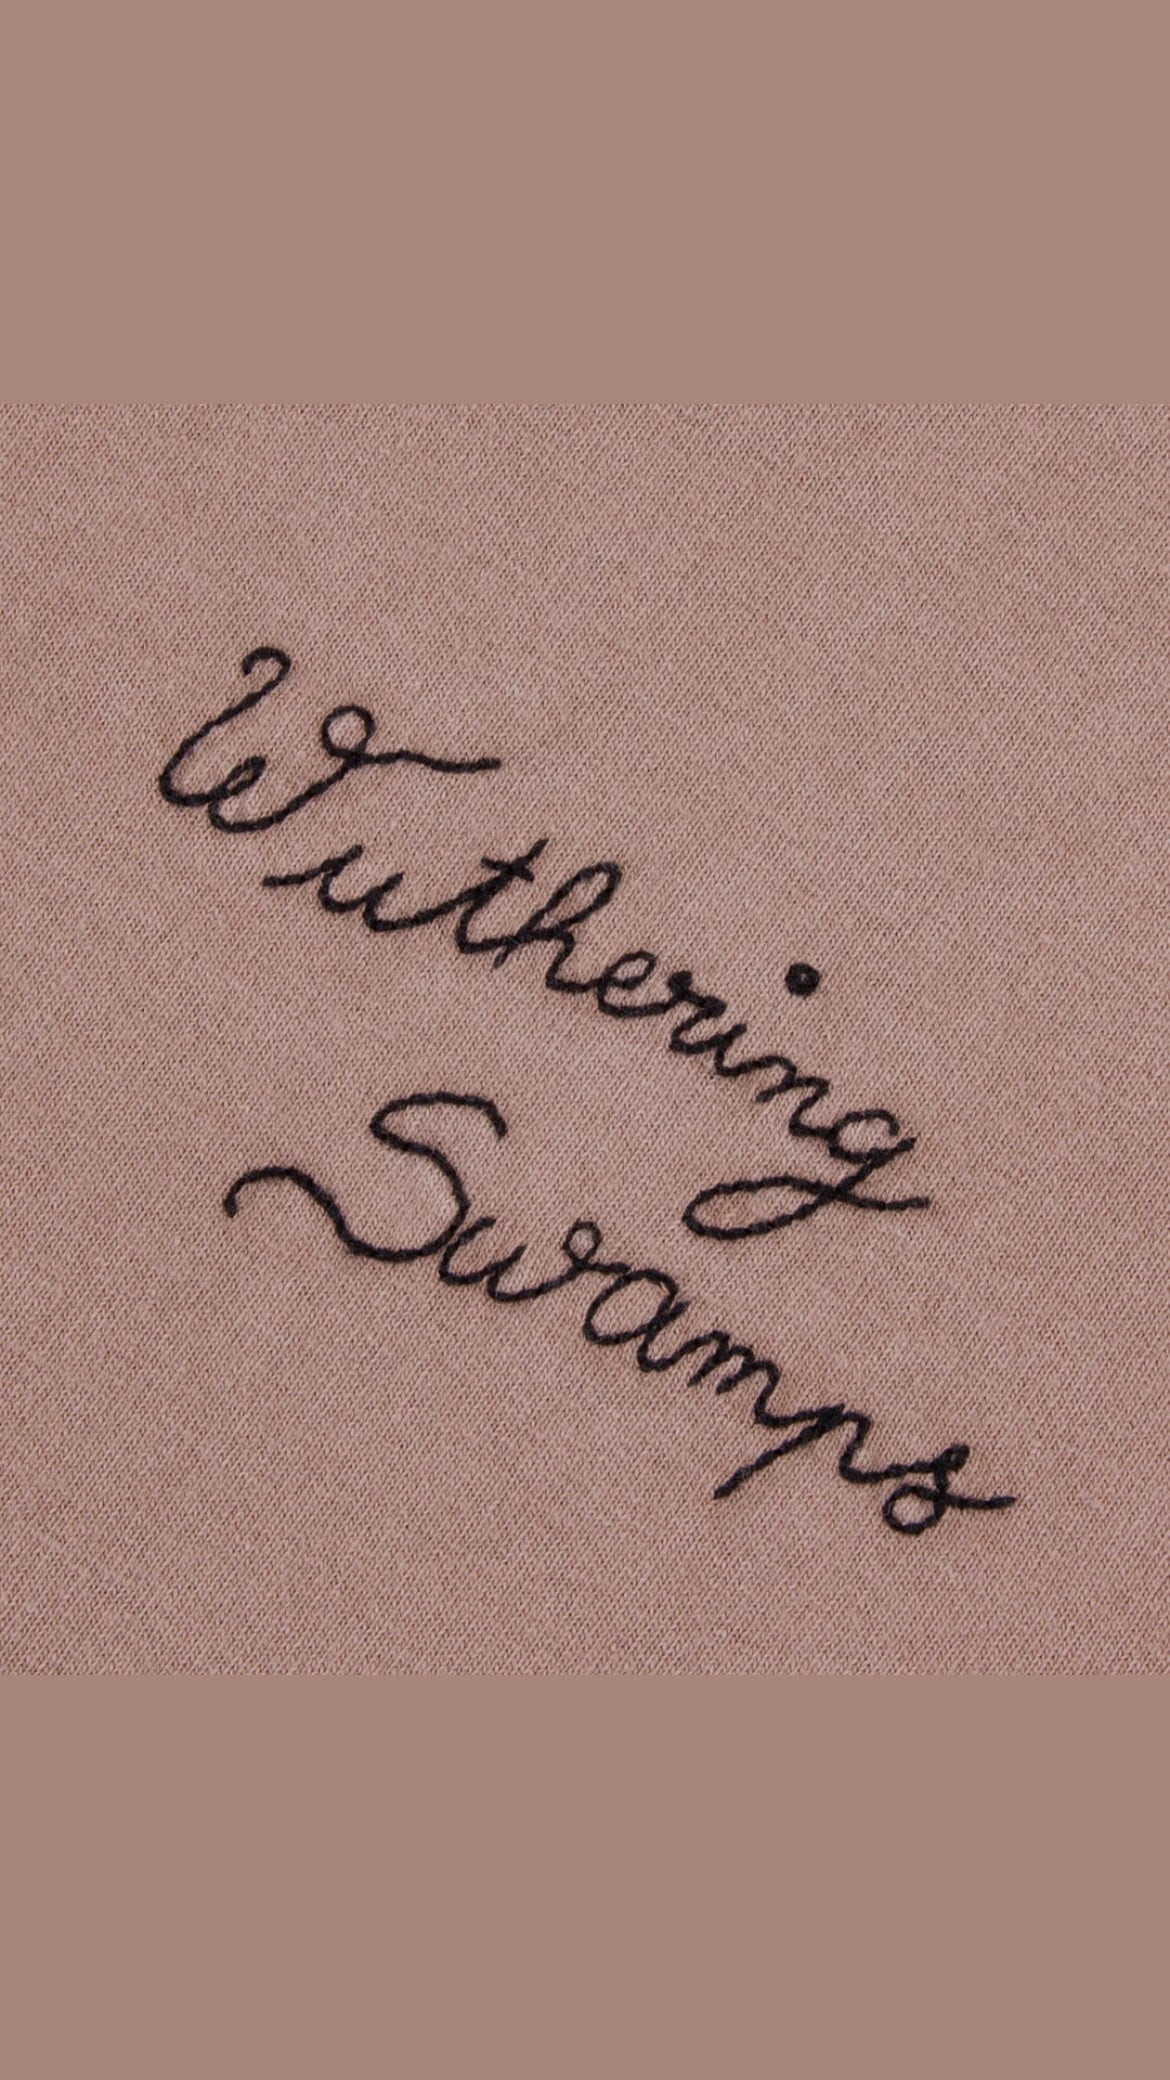 Wuthering
Swamps